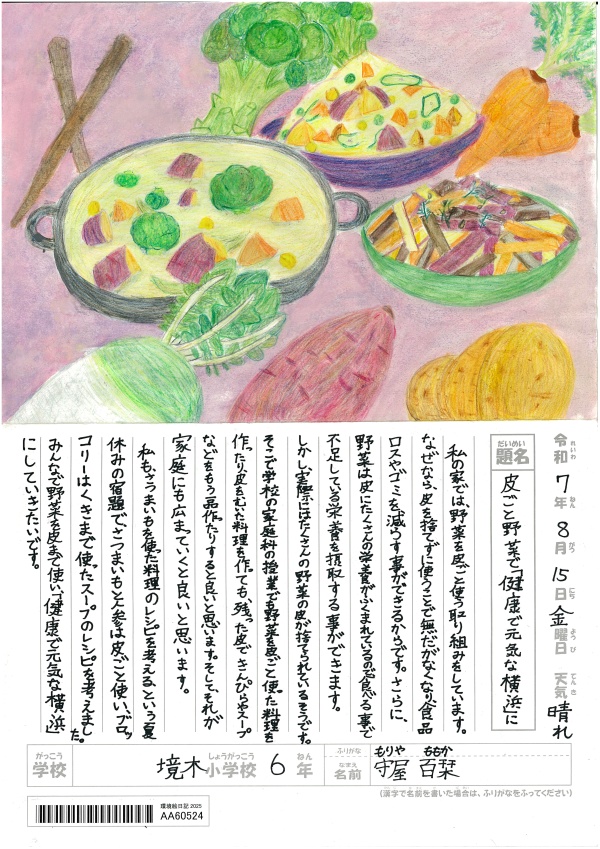 令和7年8月15日金曜日 天気 晴れ
れいわ ねん がつ にち ようび てんき
だいめい
題名
皮ごと野菜で「健康で元気な横浜」に
私の家では野菜を皮ごと使う取り組みをしています。
なぜなら、皮を捨てずに使うことで無だがなくなり、食品
ロスやゴミを減らす事ができるからです。さらに、
野菜は皮にたくさんの栄養がふくまれているので食べる事で
不足している栄養を摂取する事ができます。
しかし、実際にはたくさんの野菜の皮が捨てられているそうです。
そこで学校の家庭科の授業でも野菜を皮ごと使った料理を
作ったり皮をむいた料理を作っても、残った皮できんぴらやスープ
などをもう一品作ったりすると良いと思います。そして、それが
家庭にも広まっていくと良いと思います。
私も、さつまいもを使った料理のレシピを考える、という夏
休みの宿題で、さつまいもと人参は皮ごと使い、ブロッ
コリーはくきまで使ったスープのレシピを考えました。
みんなで野菜を皮まで使い、「健康で元気な横浜」
にしていきたいです。
がっこう しょうがっこう ねん ふりがな もりや ももか
学校 境木小学校 6年 なまえ 名前 守屋 百栞
(漢字で名前を書いた場合は、ふりがなをふってください)
環境絵日記 2025
AA60524